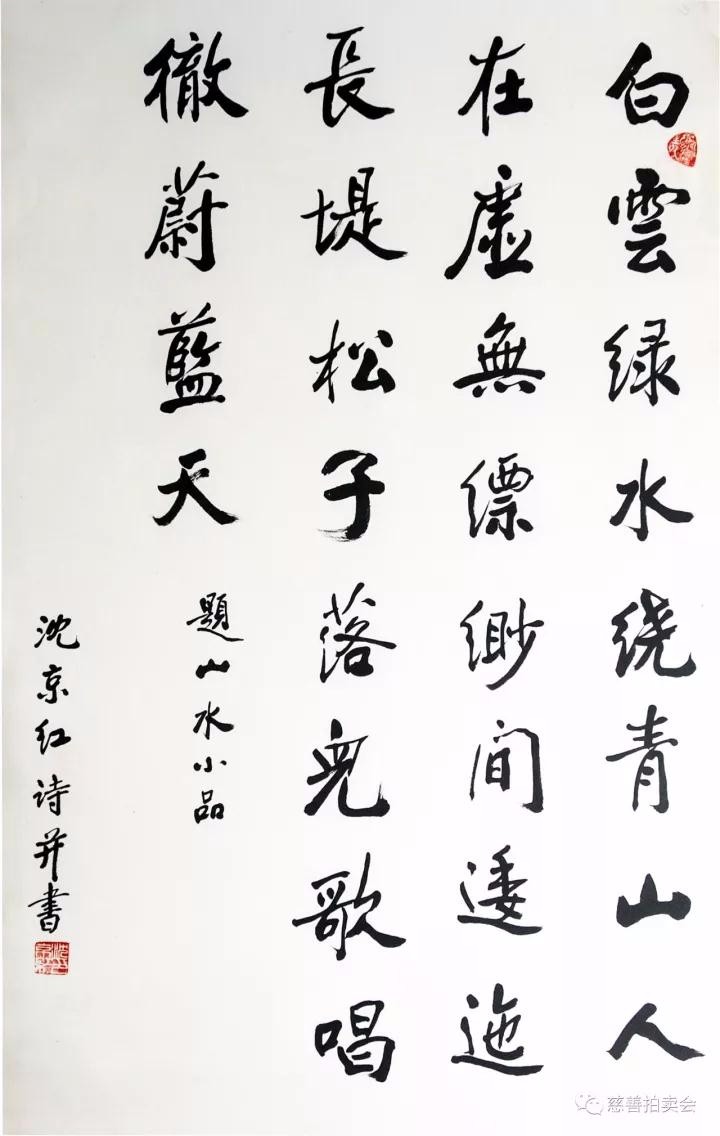 白雲绿水绕青山人
在虛無缥缈间逶迤
長堤松子落兒歌唱
徹蔚藍天
題山水小品
沈京红诗并書
慈善拍卖会